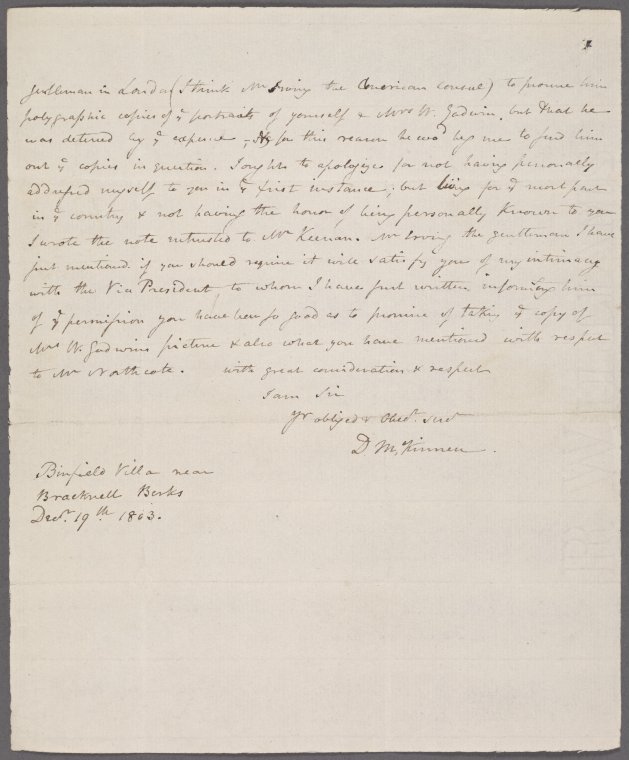 gentleman in London (I think Mr Irving the American Consul) to procure him
polygraphic copies of ye portraits of yourself & Mrs W. Godwin, but that he
was deterred by ye expence, & for this reason he wod beg me to find him
out ye copies in question. I ought to apologize for not having personally
addressed myself to you in ye first instance; but living for ye most part
in ye country & not having the honor of being personally known to you
I wrote the note entrusted to Mr Keenan. Mr Irving the gentleman I have
just mentioned if you should require it will satisfy you of my intimacy
with the Vice President, to whom I have just written informing him
of ye permission you have been so good as to promise of taking ye copy of
Mrs W. Godwins picture & also what you have mentioned with respect
to Mr Northcote. with great consideration & respect
I am Sir
Yr obliged & Obedt. Servt
D McKinnen.
Binfield Villa near
Bracknell Berks
Decr. 19th 1803.